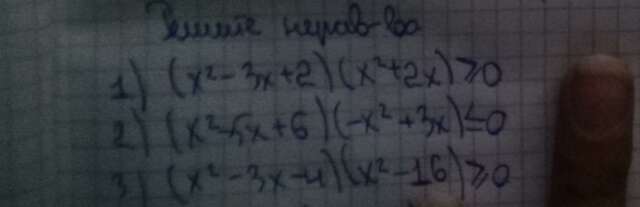 Решите нерав-ва
1) (x²-3x+2)(x²+2x)≥0
2) (x²-5x+6)(-x²+3x)≤0
3) (x²-3x-4)(x²-16)≥0